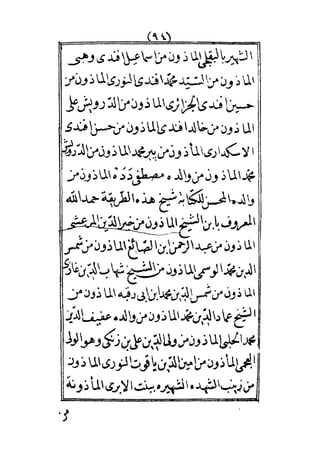 (٩٤)
الشهير بالبقلي المأذون من اسماعيل افندى وهبى
المأذون من السيد محمد افندى النورى المأذون من
حسين افندى الجزائرى المأذون من الدرويش على
المأذون من خالد افندى المأذون من حسن افندى
الاسكدارى المأذون من پير محمد المأذون من الدرويش
محمد المأذون من والده مصطفى دده المأذون من
والده المحسن للكتابة شيخ هذه الطريقة حمد الله
المعروف بابن الشيخ المأذون من خير الدين المرعشى
المأذون من عبد الرحمن ابن الصائغ المأذون من شمس
الدين محمد الوسمى المأذون من الشيخ شهاب الدين غازى
المأذون من شمس الدين محمد ابن ابى رقبه المأذون من
الشيخ عماد الدين محمد المأذون من والده عفيف الدين
محمد الحلبى المأذون من ولى الدين على بن زنكى وهو الولى
العجمى المأذون من امين الدين ياقوت النورى المأذون
من زينب الشهده الشهيره ببنت الابرى المأذونة
من